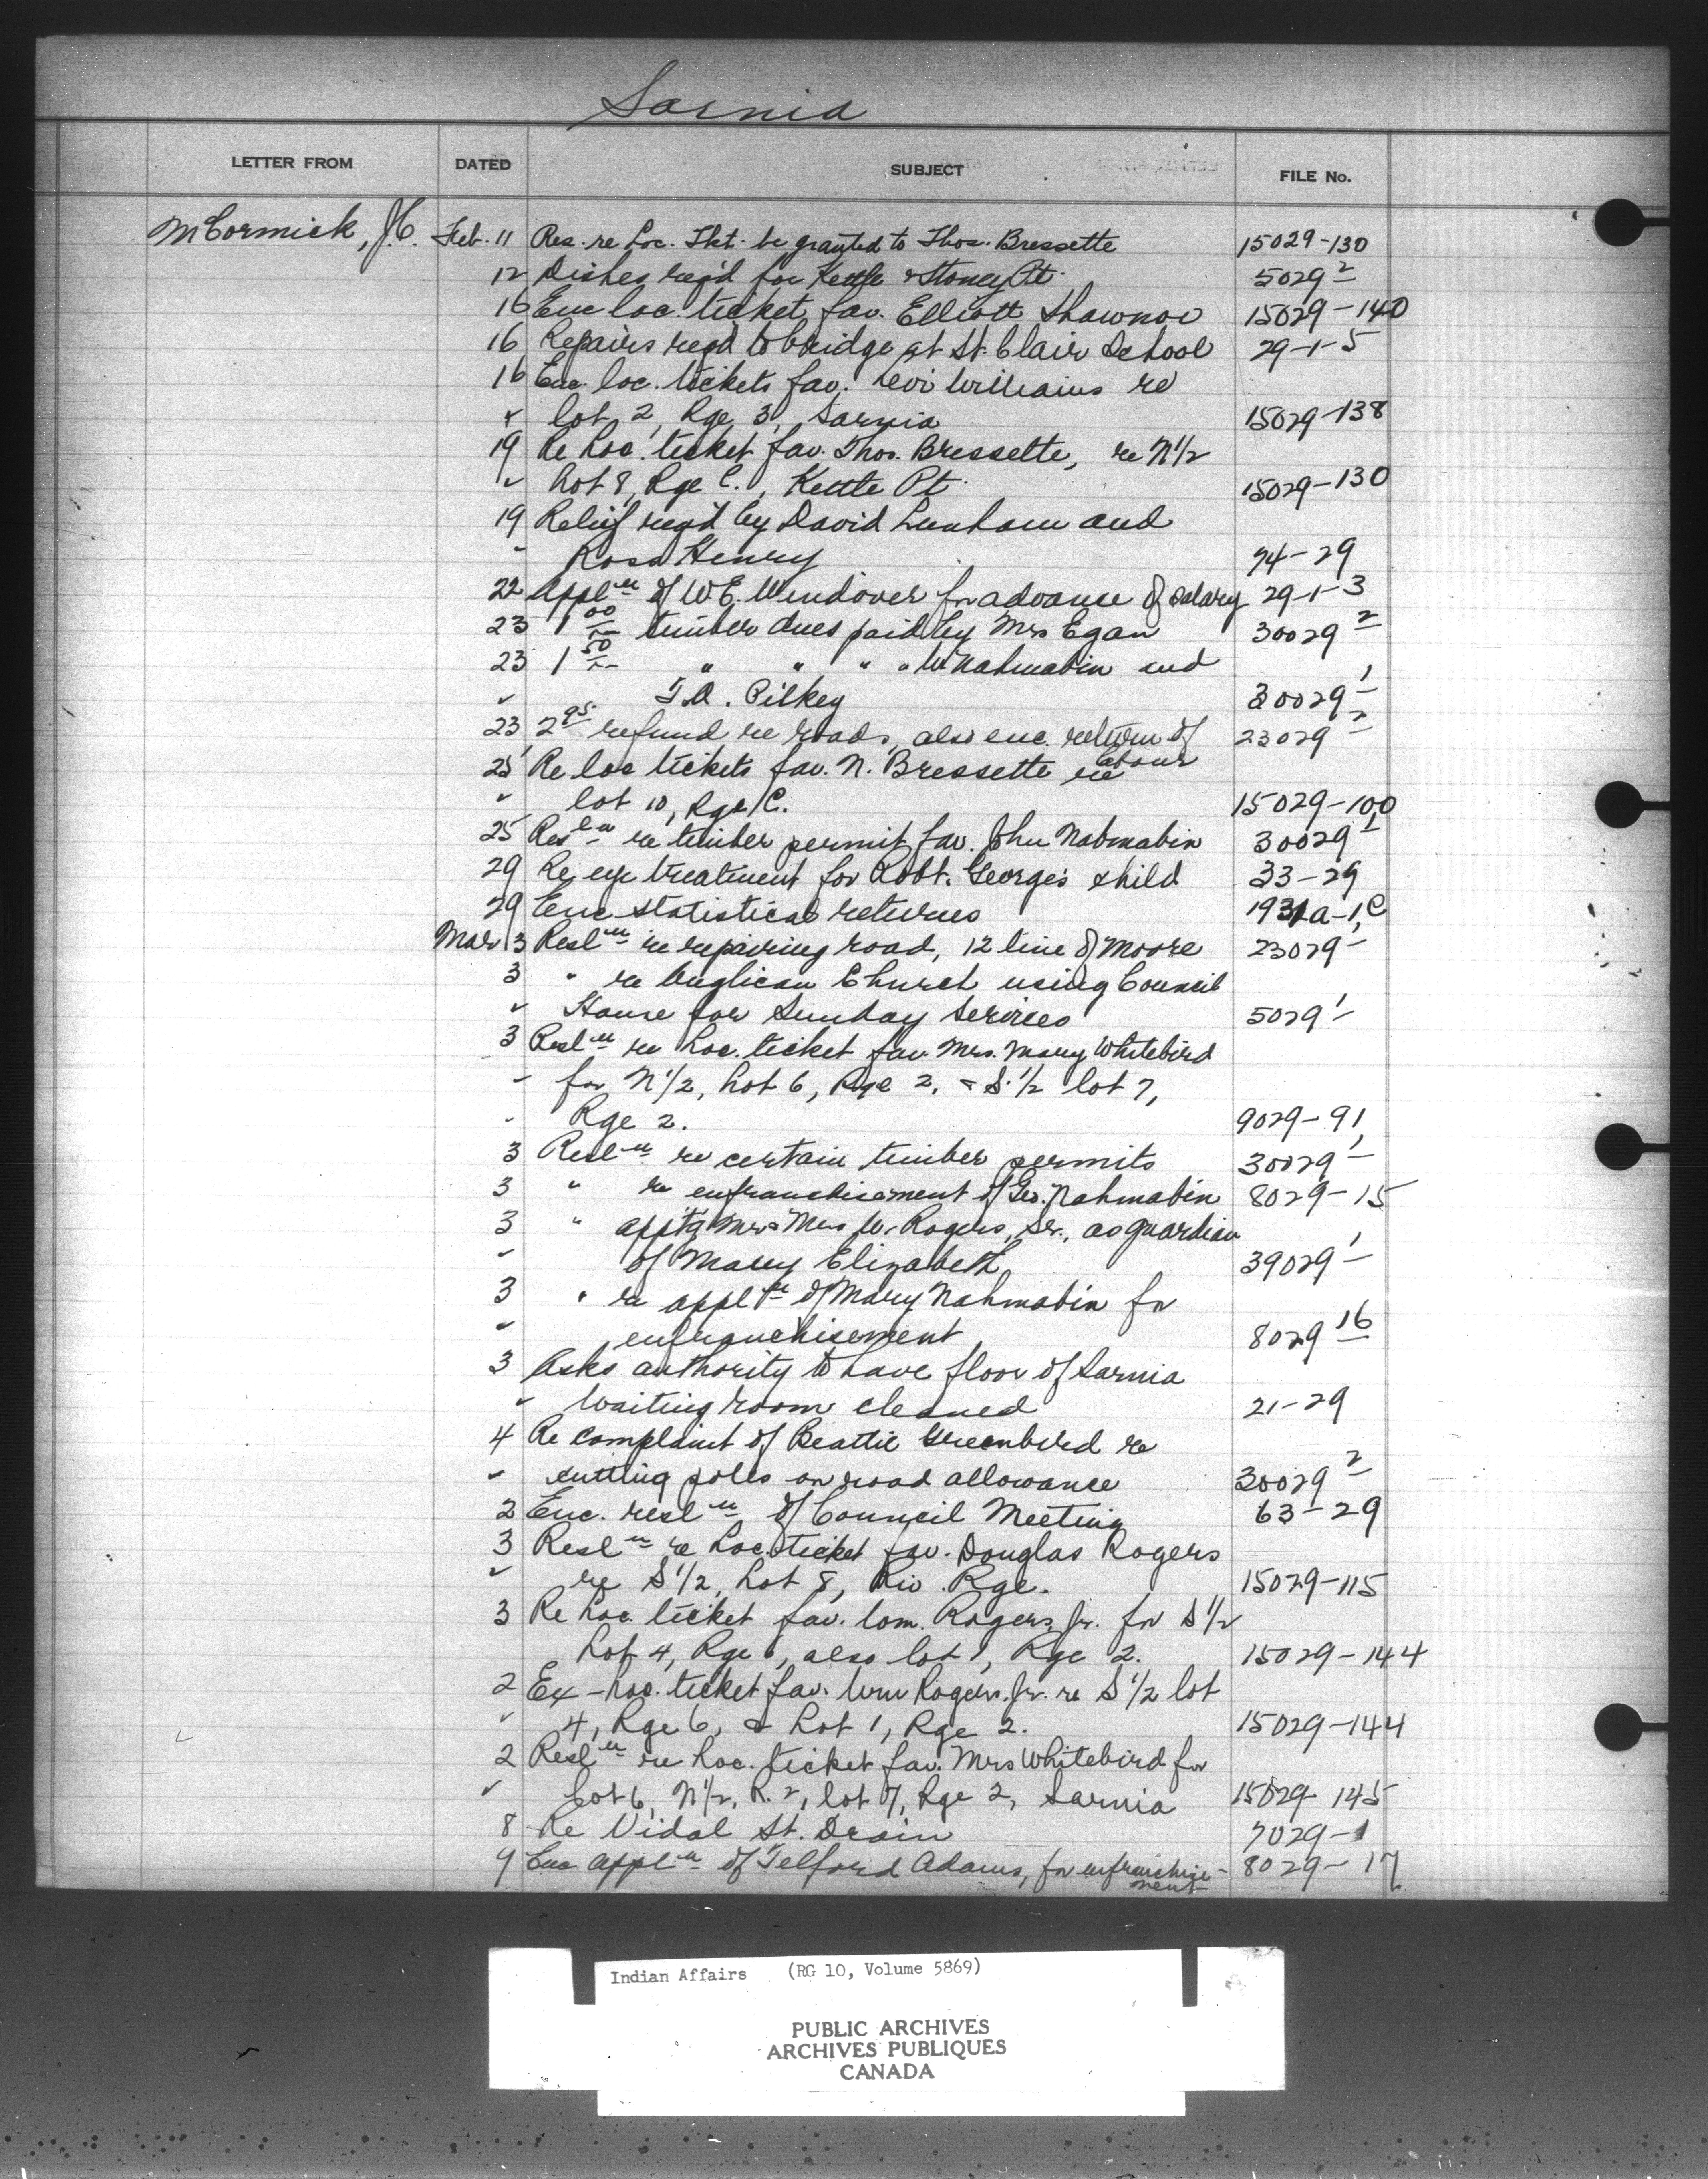 Sarnia
LETTER FROM DATED SUBJECT FILE No.
McCormick, J.C. Feb. 11 Res. re Loc. Tkt. be granted to Thos. Bressette 15029-130
12 Dishes req'd for Kettle & Stoney Pt. 5029 2
16 Enc loc. ticket fav. Elliott Shawnoo 15029-140
16 Repairs req'd to bridge at St. Clair School 29-1-5
16 Enc. loc. tickets fav. Levi Williams re
" lot 2, Rge 3, Sarnia 15029-138
19 Re Loc. ticket fav. Thos. Bressette, re N1/2
" Lot 8, Rge C., Kettle Pt. 15029-130
19 Relief req'd by David Lunham and
" Rosa Henry 74-29
22 Appln of W.E. Windover for advance of salary 29-1-3
23 1 00 timber dues paid by Mrs Egan 30029 2
23 1 50 " " " " W. Nahmabin and
" T.A. Pilkey 30029 1
23 2 95 refund re roads, also enc. return of labour 23029 2
25 Re loc tickets fav. N. Bressette re
" lot 10, Rge C. 15029-100
25 Resln re timber permit fav. John Nahmabin 30029 1
29 Re eye treatment for Robt. George's child 33-29
29 Enc statistical returns 1931a-1,C
Mar 3 Resln re repairing road, 12 line of Moore 23029-
3 " re Anglican Church using Council
" House for Sunday Services 5029 1
3 Resln re Loc. ticket fav Mrs. Mary Whitebird
" for N1/2, Lot 6, Rge 2, & S.1/2 lot 7,
" Rge 2. 9029-91
3 Resln re certain timber permits 30029 1
3 " re enfranchisement of Geo. Nahmabin 8029-15
3 " apptg Mr & Mrs W. Rogers, Sr., as guardian
" of Mary Elizabeth 39029 1
3 " re appln of Mary Nahmabin for
" enfranchisement 8029 16
3 Asks authority to have floor of Sarnia
" waiting room cleaned 21-29
4 Re complaint of Beattie Greenbird re
" cutting poles on road allowance 30029 2
2 Enc. resln of Council Meeting 63-29
3 Resln re Loc. ticket fav. Douglas Rogers
" re S1/2, Lot 8, Riv. Rge. 15029-115
3 Re Loc. ticket fav. Wm. Rogers, Jr. for S1/2
Lot 4, Rge 6, also lot 1, Rge 2. 15029-144
2 Ex-Loc. ticket fav. Wm Rogers. Jr. re S1/2 lot
" 4, Rge 6, & Lot 1, Rge 2. 15029-144
2 Resln re Loc. ticket fav. Mrs Whitebird for
" Lot 6, N1/2, R. 2, lot 7, Rge 2, Sarnia 15029-145
8 Re Vidal St. Drain 7029-1
9 Enc appln of Telford Adams, for enfranchise-ment 8029-17
Indian Affairs (RG 10, Volume 5869)
PUBLIC ARCHIVES
ARCHIVES PUBLIQUES
CANADA